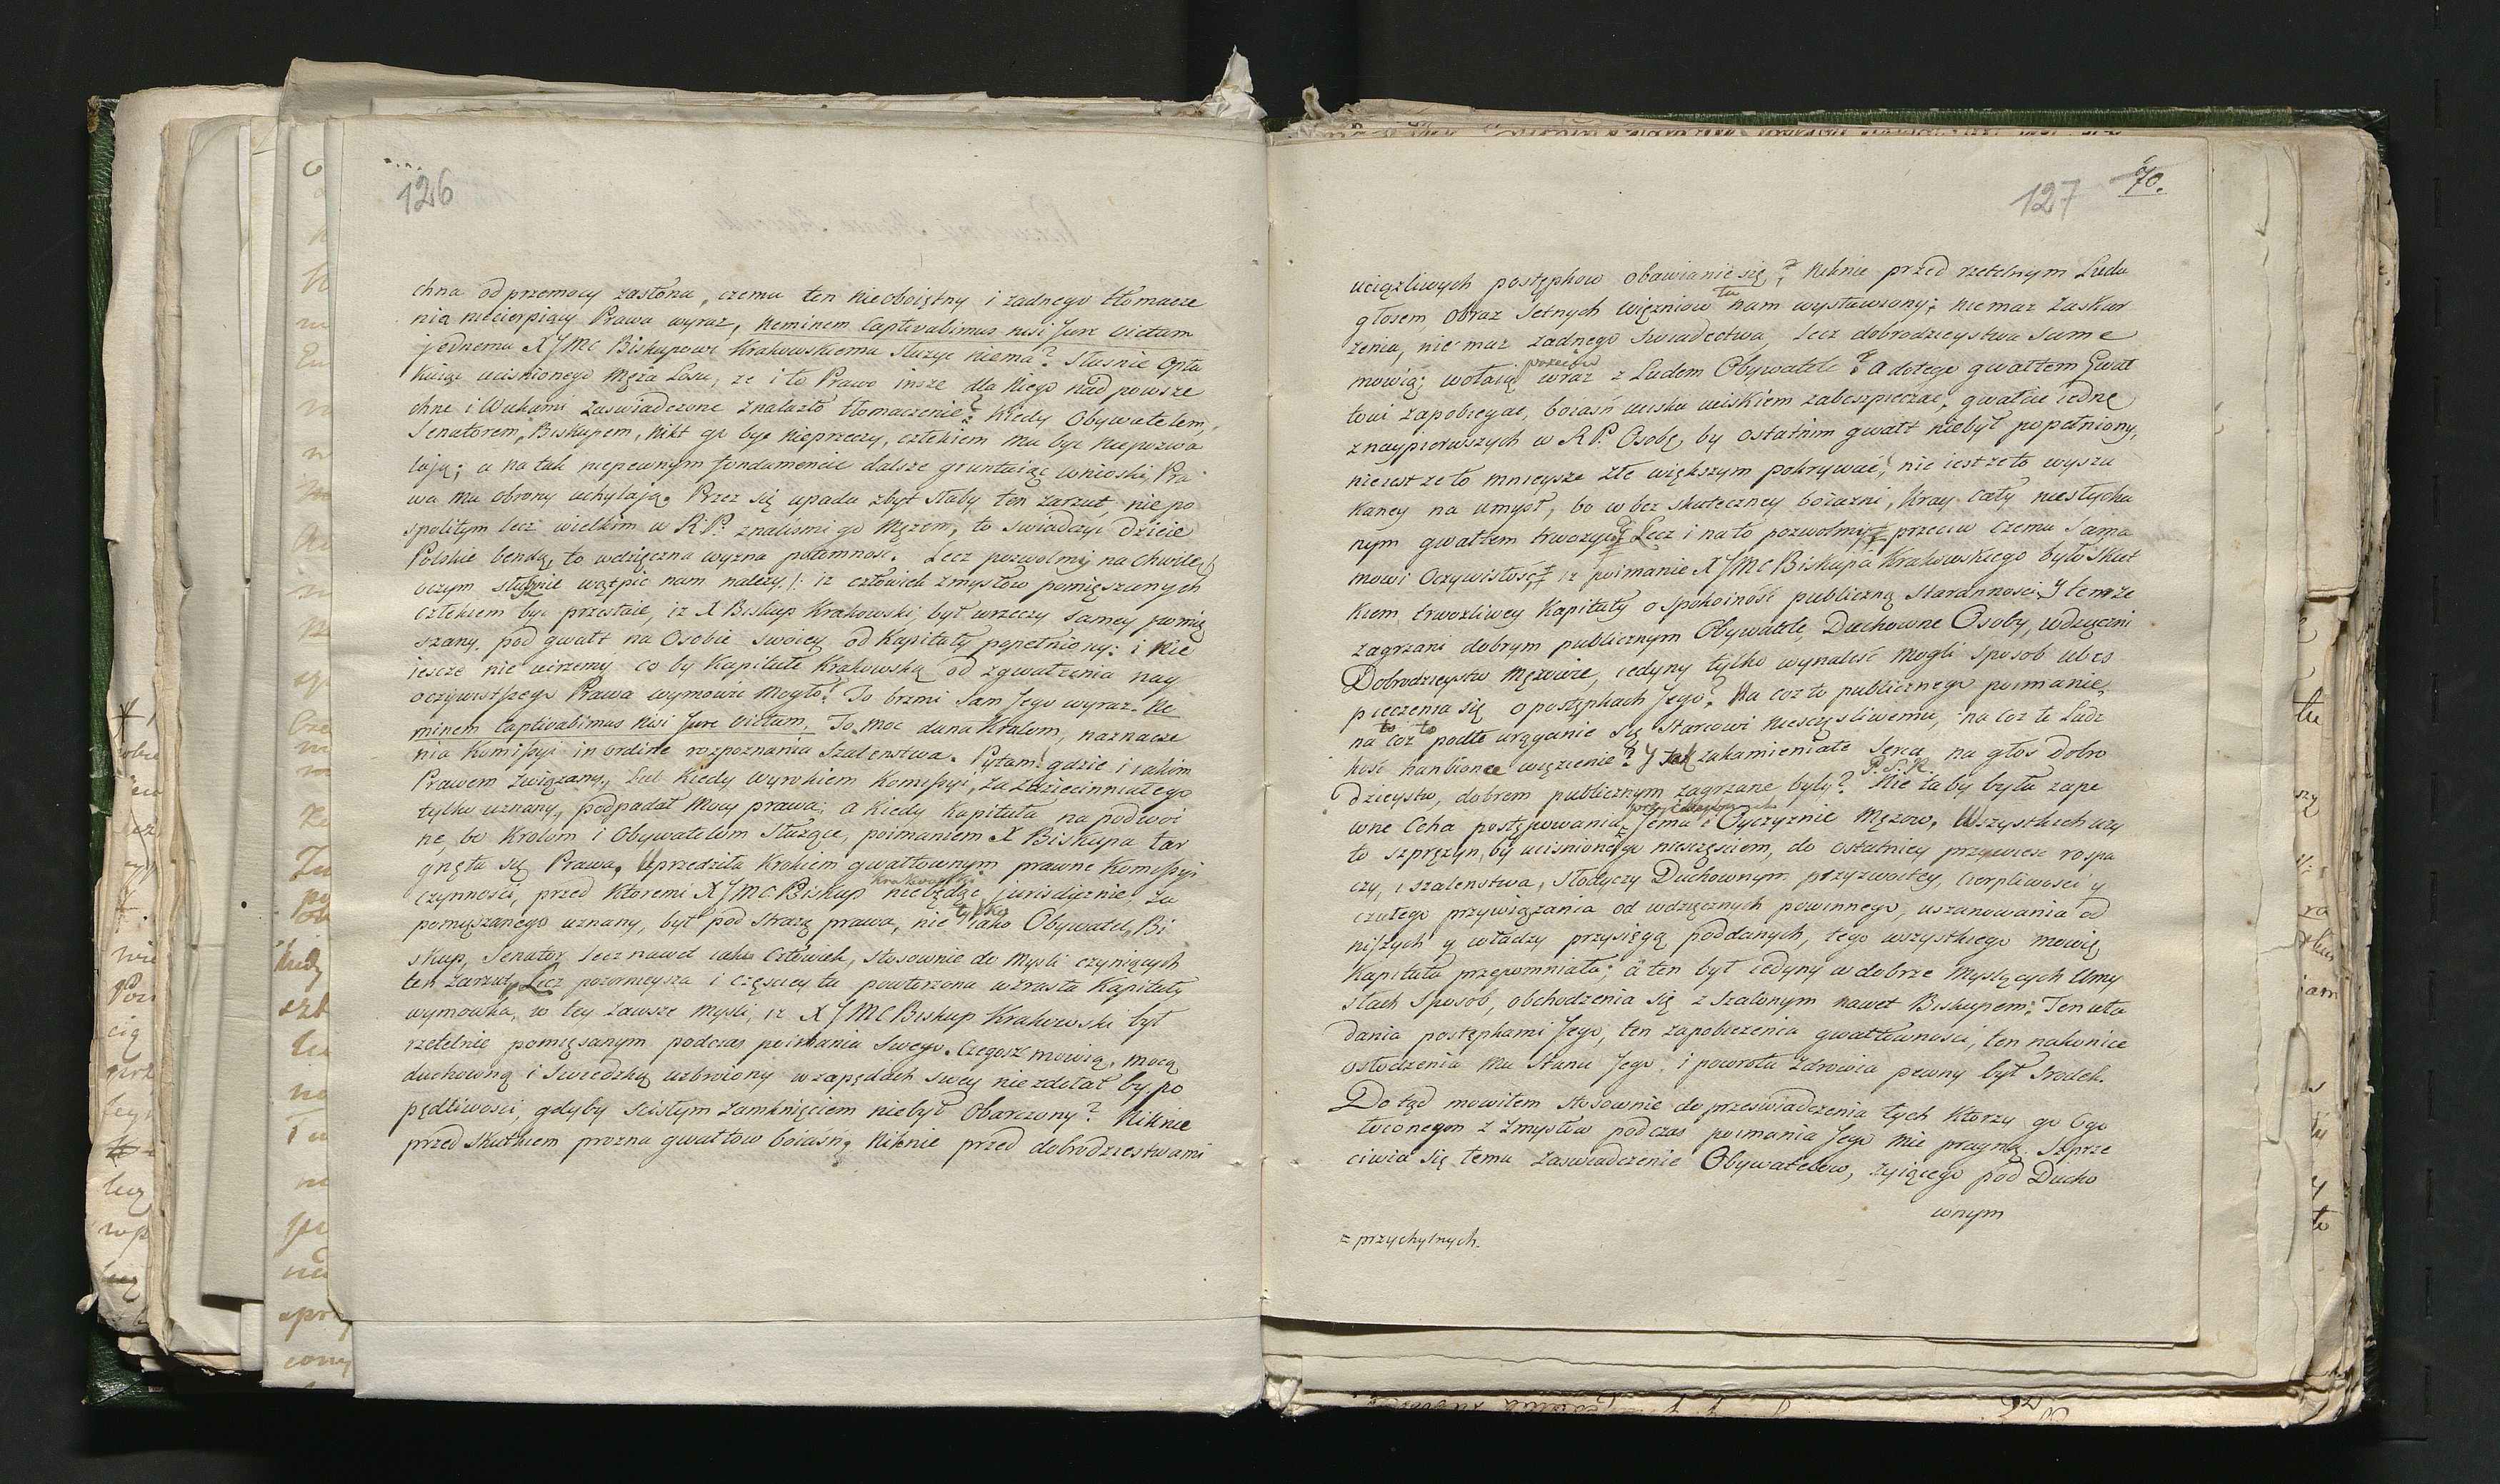 126
chna od przemocy zasłona, czemu ten nieoboiętny i żadnego tłomacze
nia niecierpiący Prawa wyraz, neminem Captivabimus nisi Jure victum
jednemu XJMC Biskupowi Krakowskiemu służyć niema? Słusnie Opła
kuiąc ucisnionego Męża Losu, ze i to Prawo insze dla niego nad powsze
chne i Wiekami zaswiadczone znalazło tłomaczenie? Kiedy Obywatelem,
Senatorem, Biskupem, nikt go być nieprzeczy, człekiem mu być niepozwa
lają; a na tak niepewnym fundamencie dalsze gruntaiąc wnioski, Pra
wa mu obrony uchylają. Przez się upada zbyt słaby ten zarzut, nie po
spolitym lecz wielkim w R.P. znalismi go Mężem, to swiadczyć dzieie
Polskie bendą, to wdzięczna wyzna potomnosc. Lecz pozwolmy na chwilę
oczym słusznie wątpić nam należy /: iz człowiek zmysłow pomięszanych
człekiem być przestaie, iz X Biskup Krakowski był wrzeczy samey pomię
szany, pod gwałt na Osobie swoiey od Kapituły popełniony: i nie
iescze nie uirzemy co by Kapitułę Krakowską od zgwałcenia nay
oczywistszego Prawa wymowić mogło? To brzmi sam Jego wyraz. Ne
minem Captivabimus nisi Jure victum. To moc dana Krolom, naznacze
nia Komissyi in ordine rozpoznania Szalenstwa. Pytam gdzie i iakim
Prawem związany, Lub kiedy wyrokiem Komissyi, za zdziecinniałego
tylko uznany, podpadał Mocy prawa; a kiedy Kapituła na podwoi
ne, bo Krolom i Obywatelom Służące, poimaniem X Biskupa tar
gnęła się Prawa. Uprzedziła Krokiem gwałtownym prawne Komissyi
czynnosci, przed ktoremi XJMC Biskup Krakowski niebędąc jurisdicznie, za
pomięszanego uznany, był pod strażą prawa, nie tylko iako Obywatel, Bi
skup, Senator, lecz nawet iako Człowiek, stosownie do Mysli czyniących
ten zarzut. Lecz pozornieysza i częsciey tu powtorzona wzrasta Kapituły
wymowka, w tey zawsze Mysli, iz XJMC Biskup Krakowski był
rzetelnie pomięsanym podczas poimania swego. Czegosz mowią, mocą
duchowną i swiedzką uzbroiony w zapędach swey niezdołał by po
pędliwosci, gdyby scisłym zamknięciem niebył Obarczony? Niknie
przed skutkiem prozna gwałtow boiaśń, niknie przed dobrodziestwami
127 70.
uciązliwych postępkow obawianie się? Niknie przed rzetelnym Ludu
głosem, obraz setnych więzniow tu nam wystawiony; niemaz zaskar
żenia, nie maz żadnego swiadectwa, lecz dobrodzieystwa same
mowią; wołaią przeciw wraz z Ludem Obywatele? A dotego gwałtem Gwał
towi zapobiegac, boiaśń ucisku uciskiem zabespieczac, gwałcić iednę
z naypierwszych w R.P. Osobę, by ostatnim gwałt niebył popełniony,
nie iest ze to mnieysze złe większym pokrywać, nie iest ze to wyszu
kaney na umysł, bo w bez skuteczney boiazni, Kray cały niesłycha
nym gwałtem trwozyć? Lecz i na to pozwolmy przeciw czemu Sama
mowi Oczywistość iz poimanie XJMC Biskupa Krakowskiego było skut
kiem trwozliwey Kapituły o spokoiność publiczną Staranności. Y temże
zagrzani dobrym publicznym Obywatele, Duchowne Osoby, wdzęczni
Dobrodzieystw Mężowie, iedyny tylko wynalesć Mogli sposob ubes
pieczenia się o postępkach Jego? Na coz to publicznego poimanie,
na coz to podłe urąganie się Starcowi niesczęsliwemu, na coz te Ludz
kość hanbiące więzienie? Y tak zakamieniałe serca, na głos dobro
dzieystw, dobrem publicznym zagrzane były? P.S.R. Nie taby była zape
wne Cecha postępowania, Jemu i Oyczyznie Mężow. Wszystkich uzy
to szprężyn, by ucisnionego niesczęsciem, do ostatniey przywiesć rospa
czy, i szalenstwa, słodyczy Duchownym przyzwoitey, cierpliwosci y
czułego przywiązania od wdzęcznych powinnego, uszanowania od
niszych y władzy przysięgą poddanych, tego wszystkiego mowię
Kapituła przepomniała; a ten był iedyny w dobrze myslących Umy
słach sposob, obchodzenia się z szalonym nawet Biskupem: Ten ula
dania postępkami Jego, ten zapobieżenia gwałtowności, ten nakoniec
osłodzenia mu stanu Jego, i powrotu zdrowia pewny był srodek.
Do tąd mowiłem stosownie do przeswiadczenia tych ktorzy go Ogo
łoconego z zmysłow podczas poimania Jego mie pragną. Sprze
ciwia się temu zaswiadczenie Obywatelow, zyiącego pod Ducho
wnym
= przychylnych.